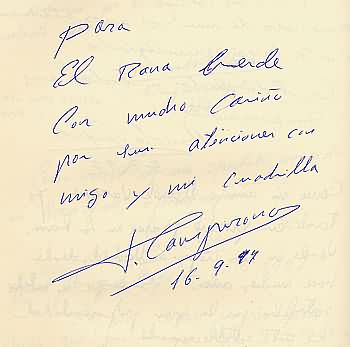 para
El Rana Verde
Con mucho Cariño
por sus atenciones con
migo y mi cuadrilla
J. Campuzano
16-9-94